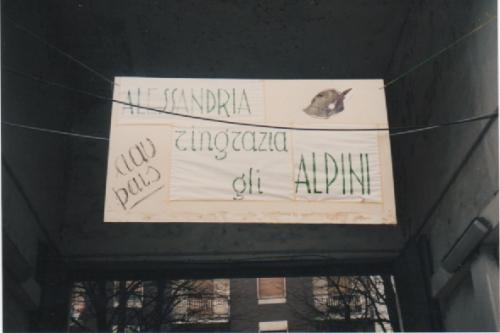 ALESSANDRIA
ringrazia
gli
ALPINI
ciau
pais